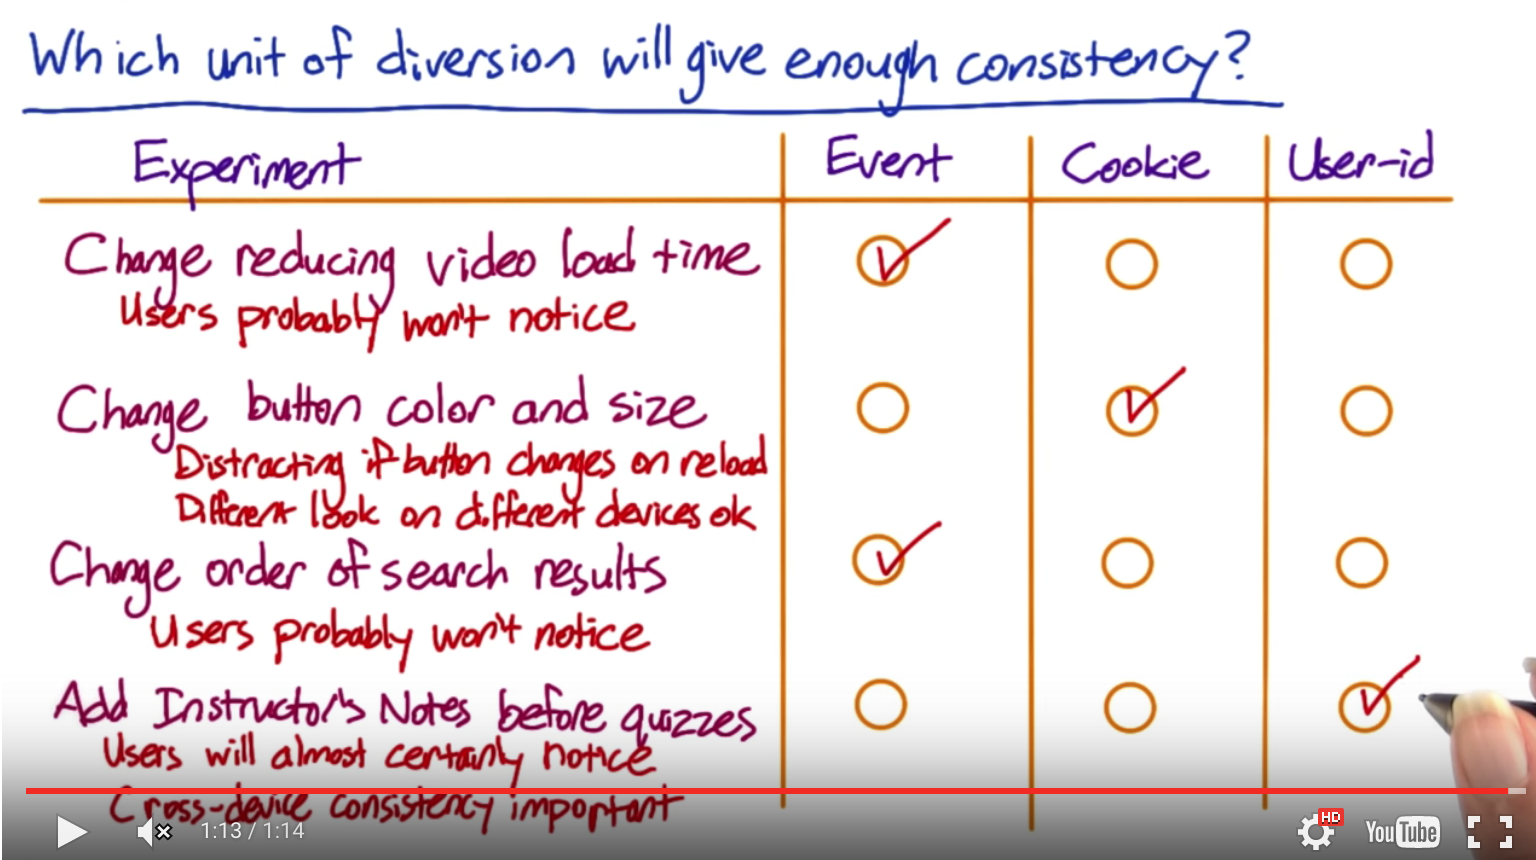 Which unit of diversion will give enough consistency?
Experiment Event Cookie User-id
Change reducing video load time
Users probably won't notice
Change button color and size
Distracting if button changes on reload
Different look on different devices ok
Change order of search results
Users probably won't notice
Add Instructor's Notes before quizzes
Users will almost certainly notice
Cross-device consistency important
1:13 / 1:14
HD
YouTube